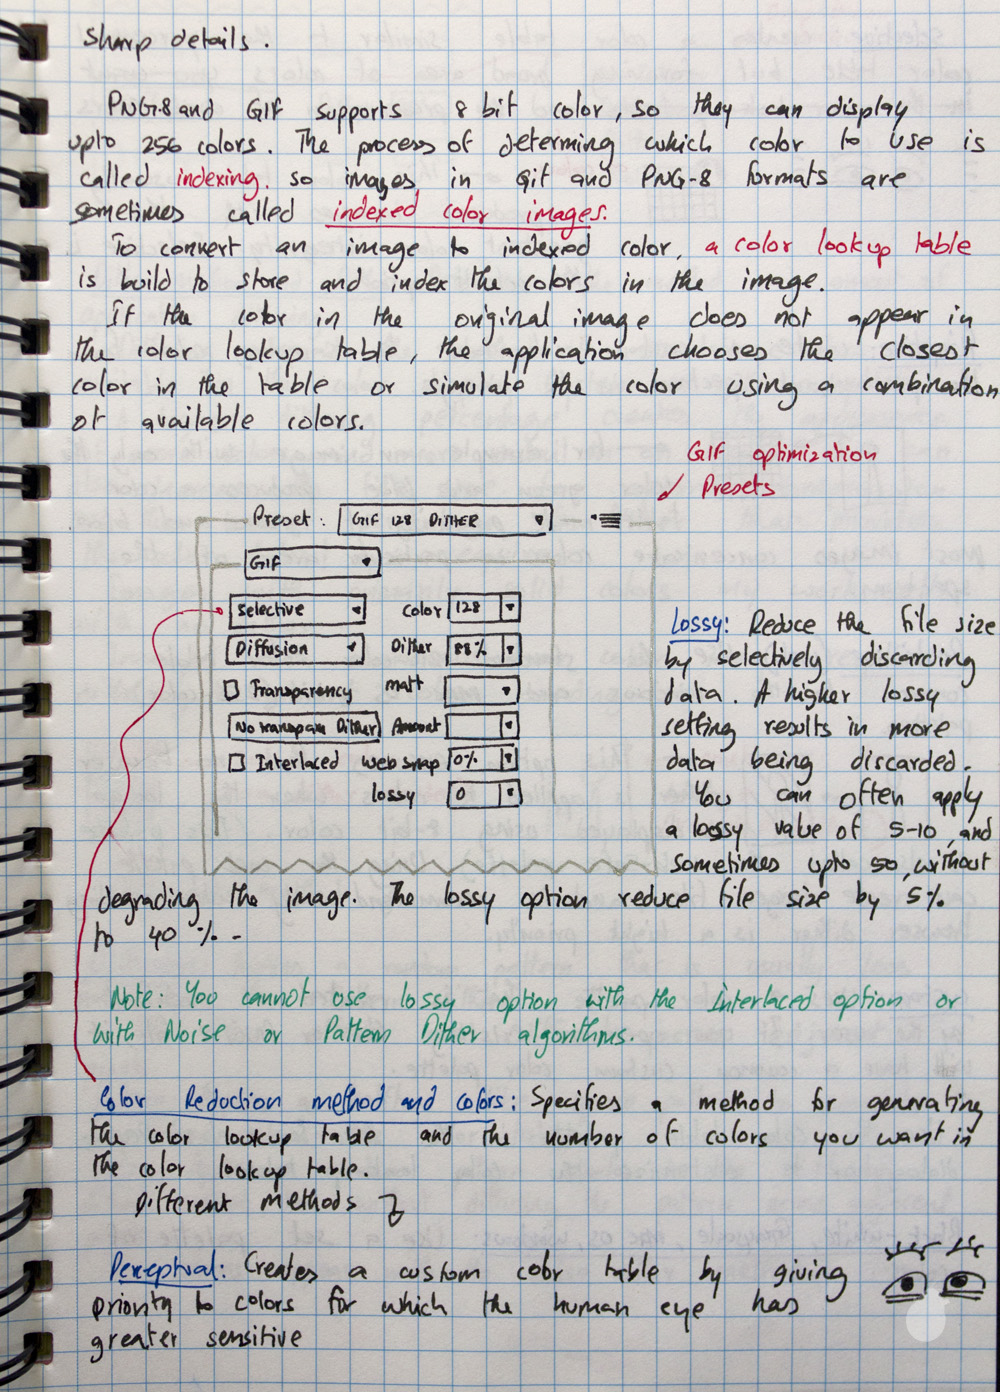 Sharp details.
PNG-8 and GIF supports 8 bit color, so they can display
upto 256 colors. The process of determing which color to use is
called indexing. so images in Gif and PNG-8 formats are
sometimes called indexed color images.
To convert an image to indexed color, a color lookup table
is build to store and index the colors in the image.
If the color in the original image does not appear in
the color lookup table, the application chooses the closest
color in the table or simulate the color using a combination
of available colors.
GIF optimization
Presets
Preset: GIF 128 DITHER
GIF
Selective color 128
Diffusion Dither 88%
Transparency matt
No transpan Dither Amount
Interlaced web snap 0%
lossy 0
Lossy: Reduce the file size
by selectively discarding
data. A higher lossy
setting results in more
data being discarded.
You can often apply
a lossy value of 5-10, and
sometimes upto 50, without
degrading the image. The lossy option reduce file size by 5%
to 40 % -
Note: You cannot use lossy option with the Interlaced option or
with Noise or Pattern Dither algorithms.
Color Reduction method and colors: Specifies a method for generating
the color lookup table and the number of colors you want in
the color lookup table.
Different methods
Perceptual: Creates a custom color table by giving
priority to colors for which the human eye has
greater sensitive